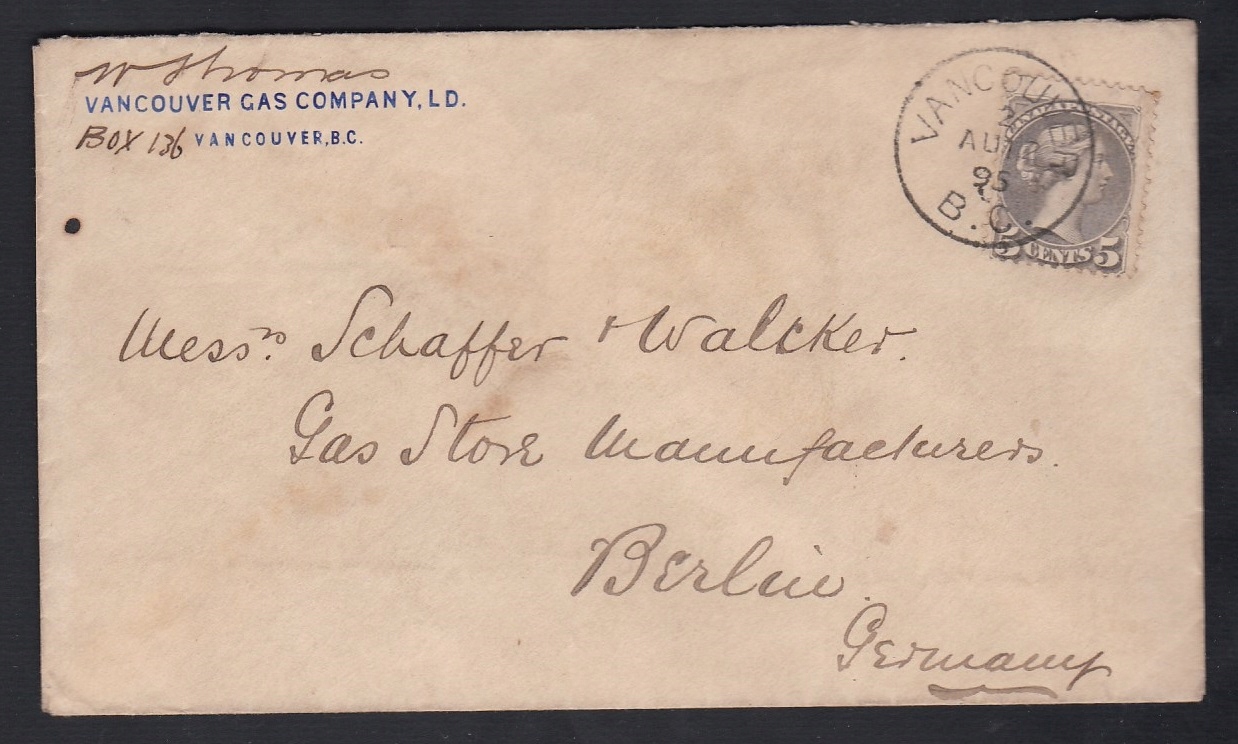 W Thomas
VANCOUVER GAS COMPANY, LD.
BOX 136 VANCOUVER, B.C.
VANCOUVER
2
AU 18
95
B.C.
5 CENTS 5
Messrs. Schaffer & Walcker.
Gas Stove Manufacturers.
Berlin.
Germany